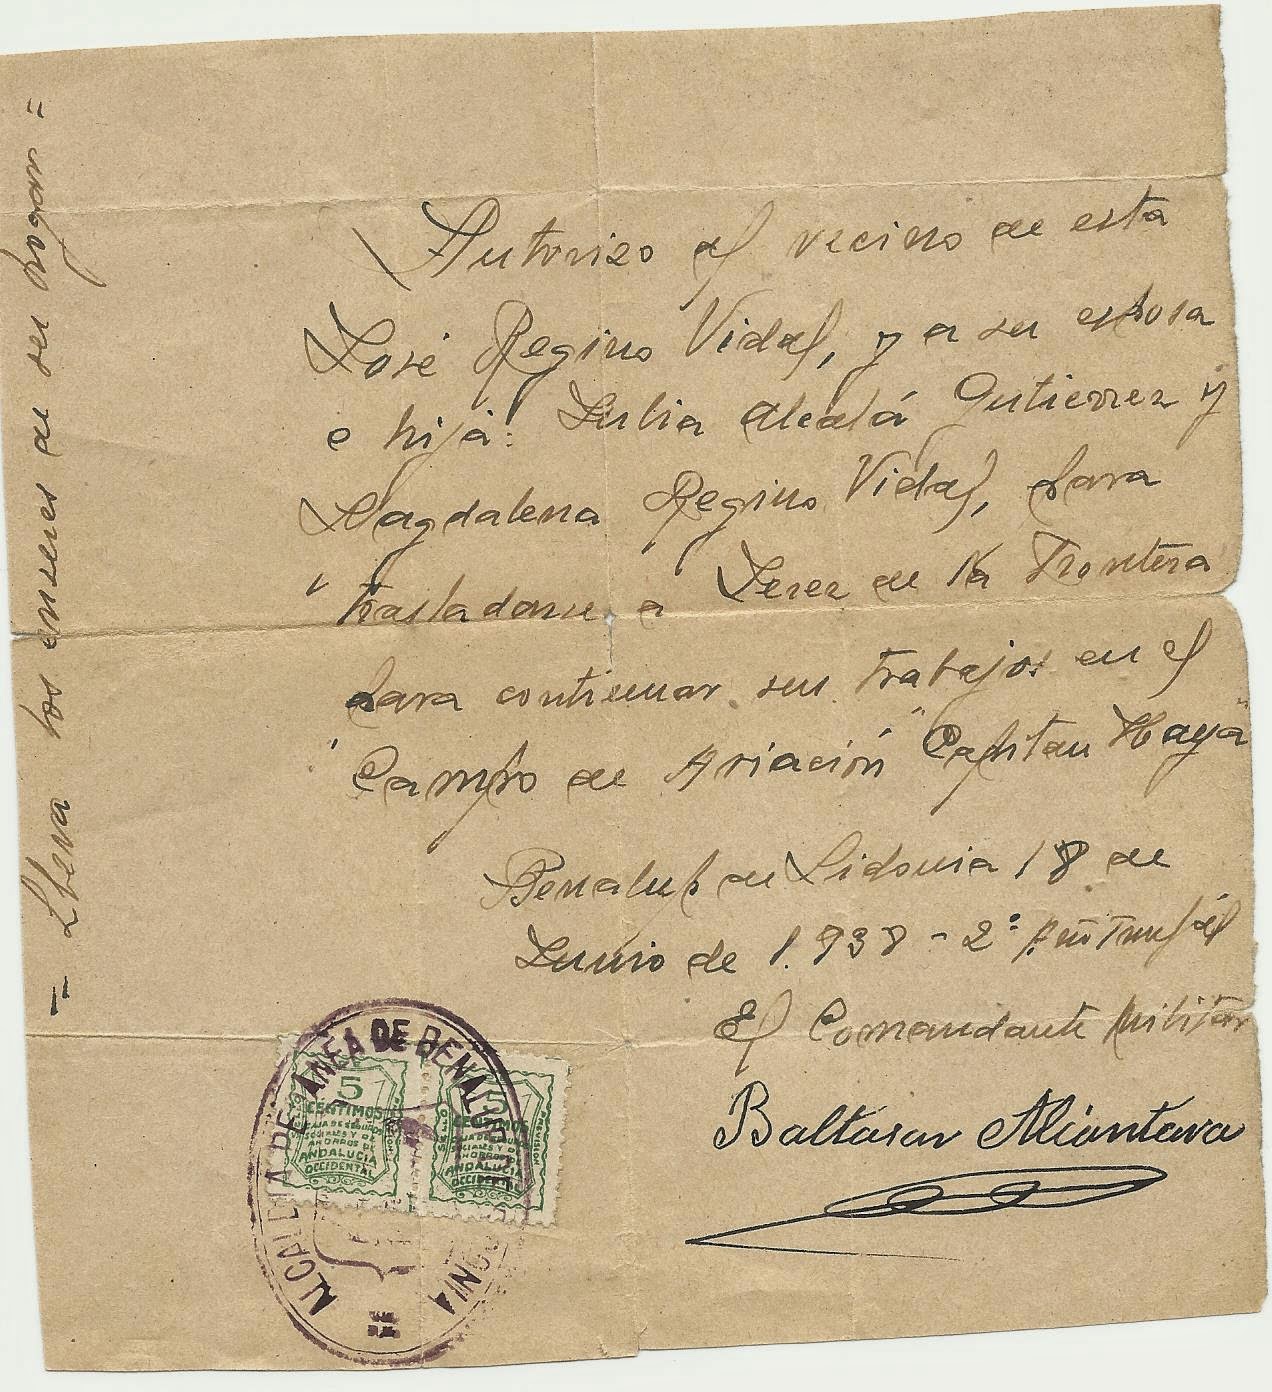 Autorizo al vecino de esta
José Regino Vidal, y a su esposa
e hija: Julia Alcalá Gutierrez y
Magdalena Regino Vidal, para
trasladarse a Jerez de la Frontera
para continuar sus trabajos en el
"Campo de Aviación" "Capitan Haya"
Benalup de Sidonia 18 de
Junio de 1.938 - 2º Año Triunfal
El Comandante Militar
Baltasar Alcantara
= Lleva los enseres de su hogar =
ALCALDIA PEDANEA DE BENALUP DE SIDONIA
5
CENTIMOS
CAJA DE SEGUROS
SOCIALES Y DE
AHORROS DE
ANDALUCIA
OCCIDENTAL
5
CENTIMOS
CAJA DE SEGUROS
SOCIALES Y DE
AHORROS DE
ANDALUCIA
OCCIDENTAL
PREVISION